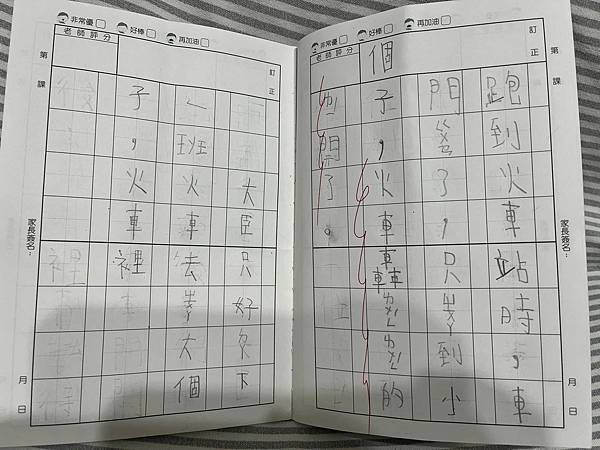 非常優 好棒 再加油
訂正
老師評分
第 課
家長簽名：
月 日
跑到火車站時，車
門 了，只ㄓㄨㄚ到小
個子，火車轟ㄌㄨㄥㄌㄨㄥ的
開了。
非常優 好棒 再加油
訂正
老師評分
第 課
家長簽名：
月 日
大臣只好 下
ㄟ班火車去ㄓㄨㄚ大個
子，火車裡